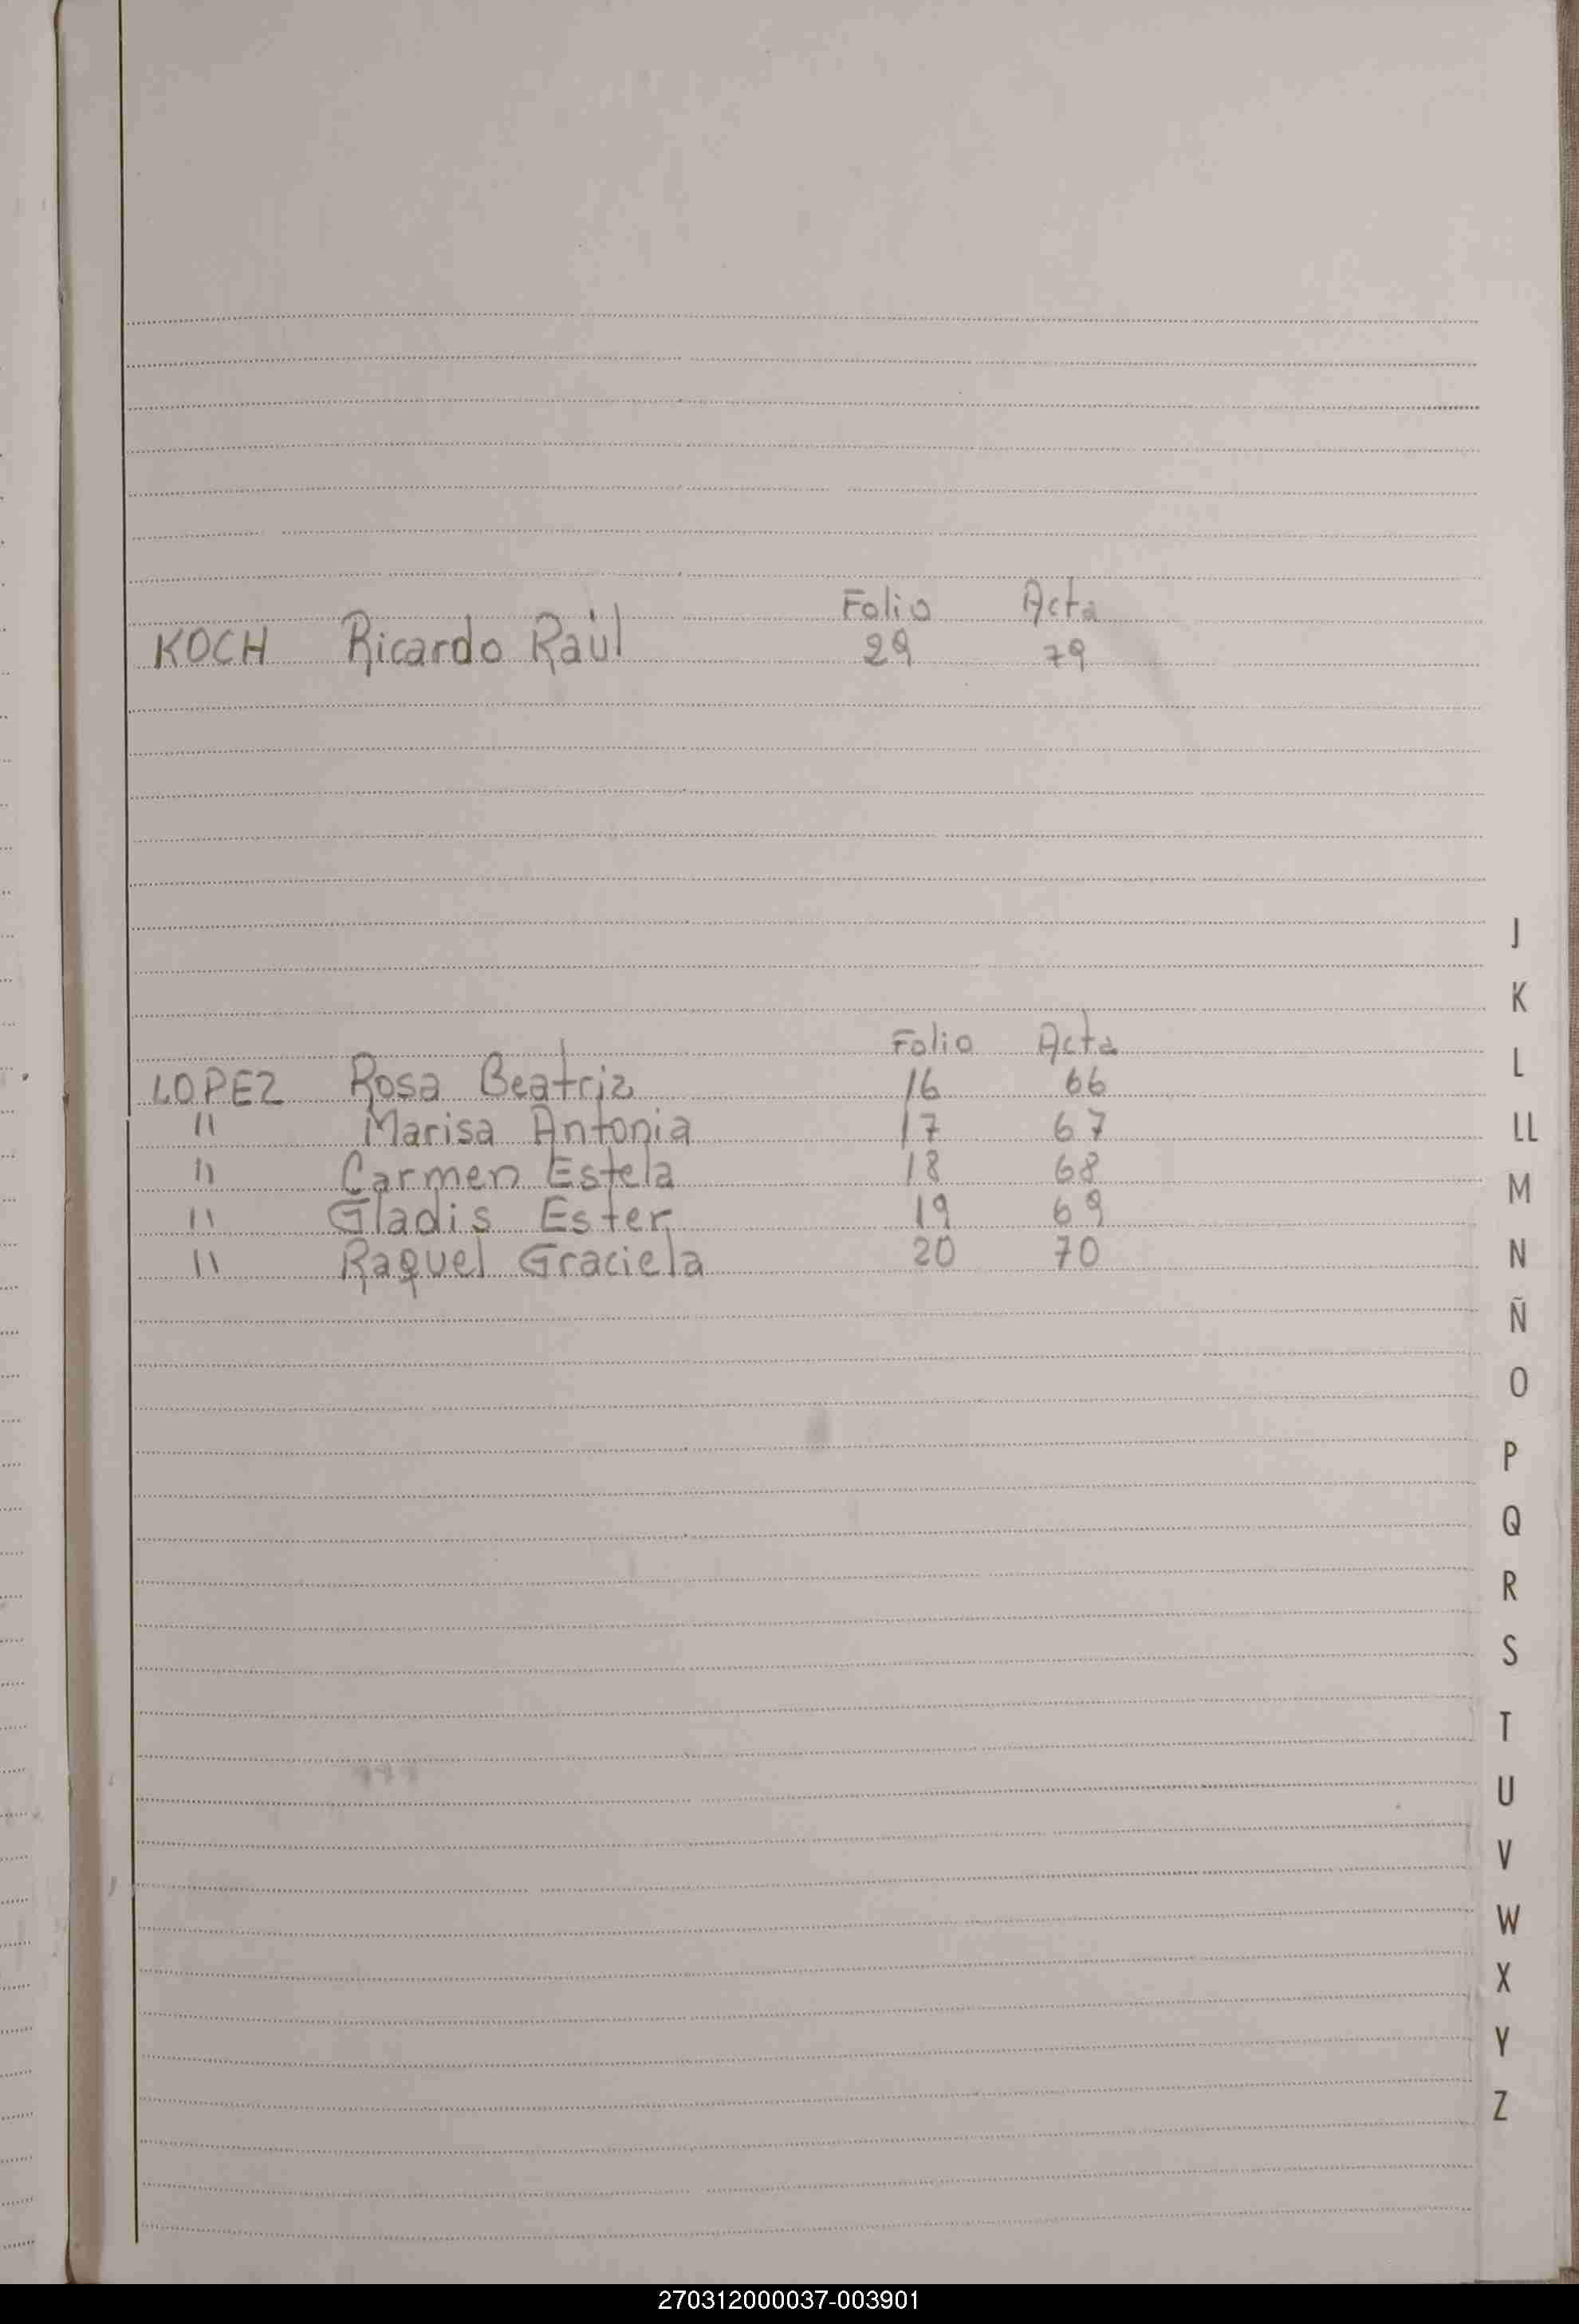 Folio Acta
KOCH Ricardo Raúl 29 79
J
K
Folio Acta
L
LOPEZ Rosa Beatriz 16 66
" Marisa Antonia 17 67
LL
" Carmen Estela 18 68
M
" Gladis Ester 19 69
" Raquel Graciela 20 70
N
Ñ
O
P
Q
R
S
T
U
V
W
X
Y
Z
270312000037-003901